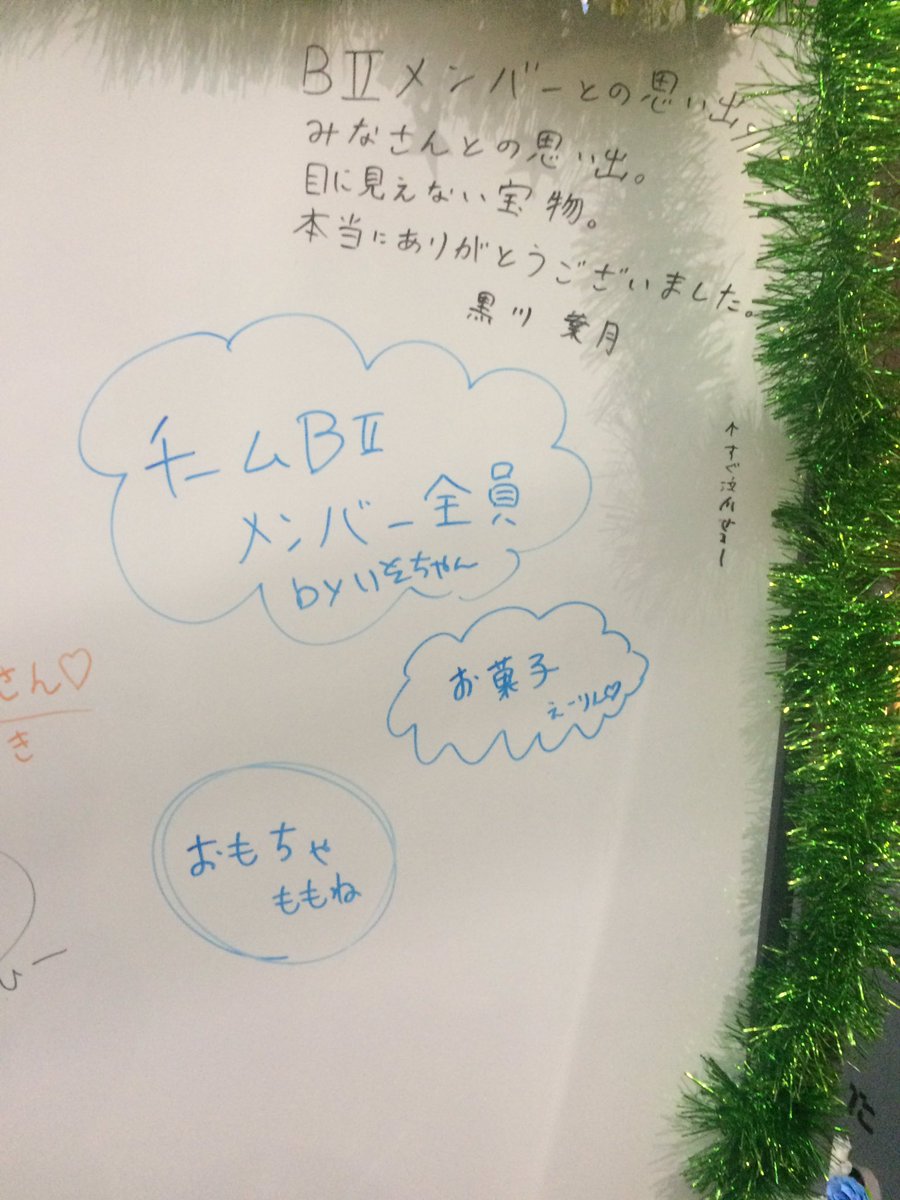 BⅡメンバーとの思い出。
みなさんとの思い出。
目に見えない宝物。
本当にありがとうございました。
黒川 葉月
チームBⅡ
メンバー全員
byいそちゃん
お菓子
えーりん♡
さん♡
き
おもちゃ
ももね